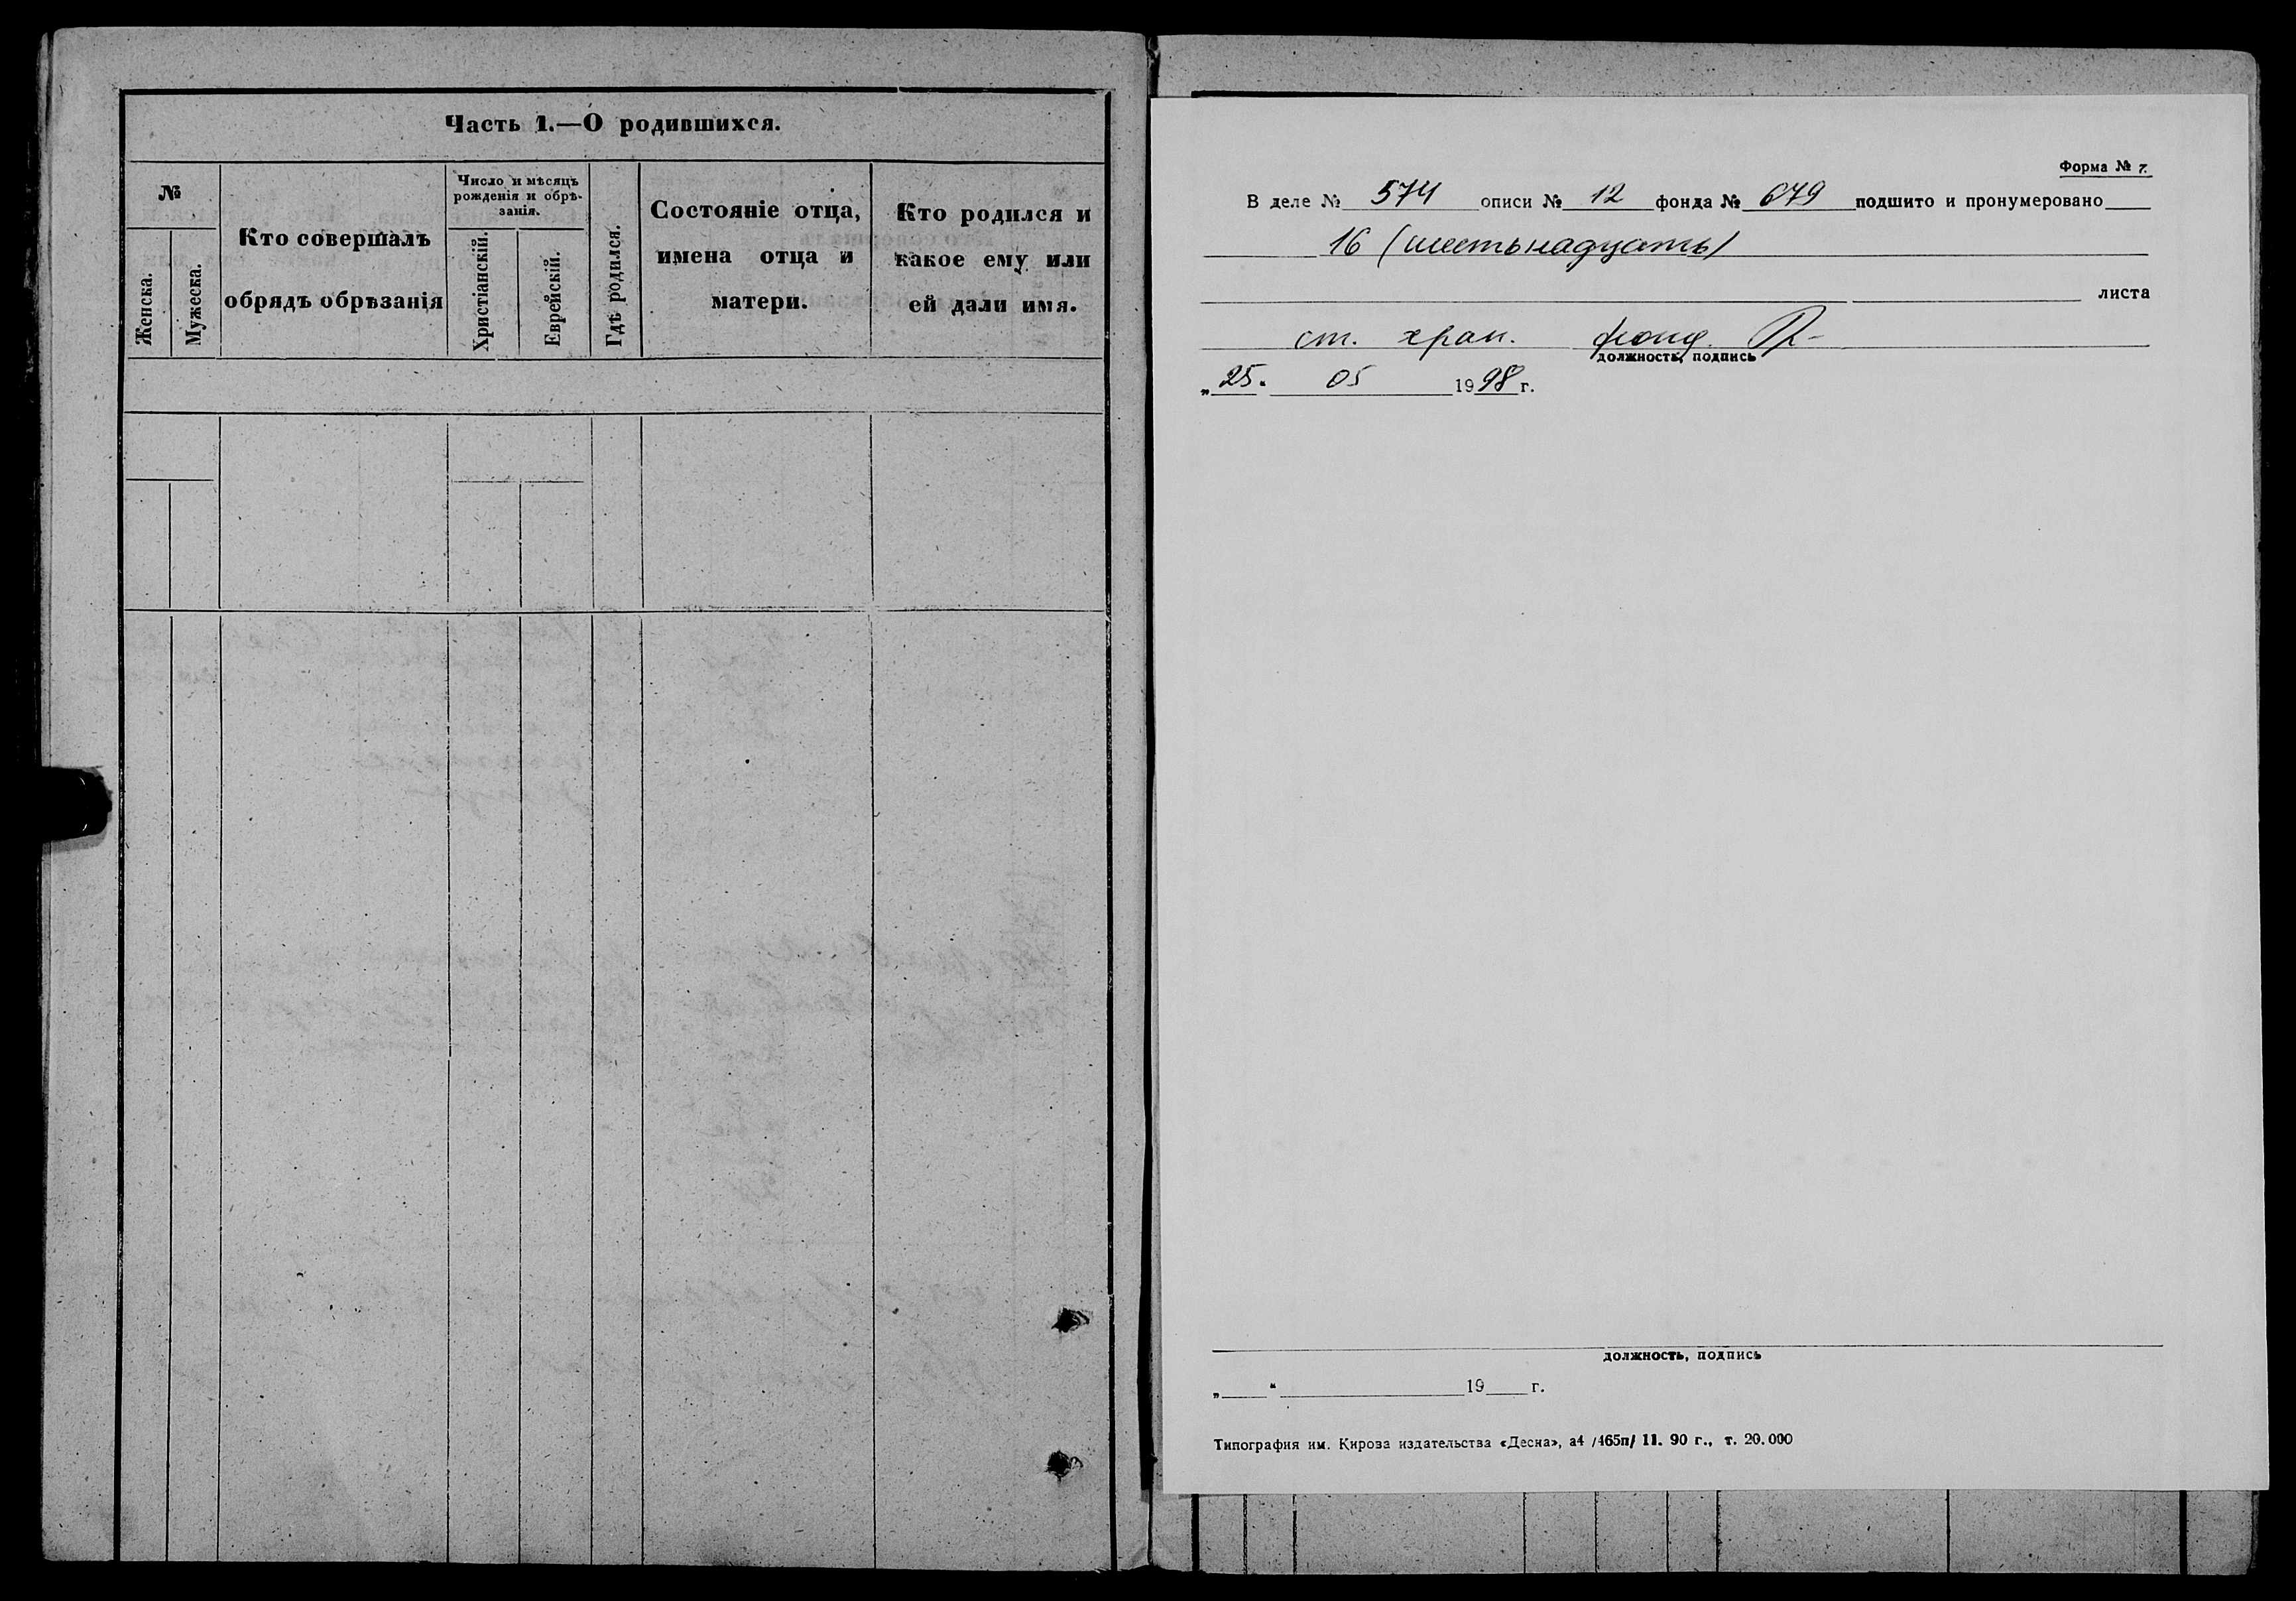 Часть 1.—О родившихся.
№
Женска.
Мужеска.
Кто совершалъ
обрядъ обрѣзанія
Число и мѣсяцъ
рожденія и обрѣ-
занія.
Христіанскій.
Еврейскій.
Гдѣ родился.
Состояніе отца,
имена отца и
матери.
Кто родился и
какое ему или
ей дали имя.
Форма № 7.
В деле № 574 описи № 12 фонда № 679 подшито и пронумеровано
16 (шестьнадцать)
листа
ст. хран. фонд.
должность, подпись
„25. 05 1998 г.
должность, подпись
„ “ 19 г.
Типография им. Кирова издательства «Десна», а4 /465п/ 11. 90 г., т. 20.000